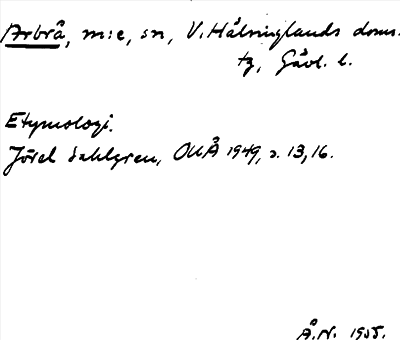 Arbrå, m:e, sn, V. Hälsinglands doms.
tg, Gävl. l.
Etymologi.
Jöran Sahlgren, OUÅ 1949, s. 13, 16.
Å.N. 1955.